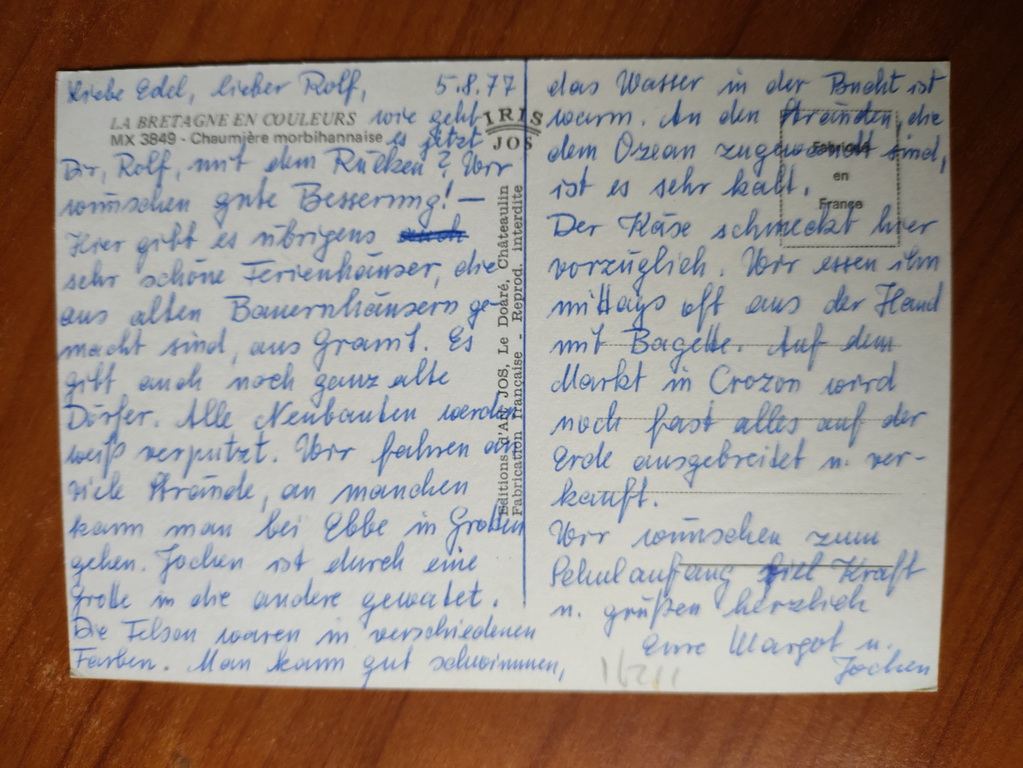 Liebe Edel, lieber Rolf, 5.8.77
LA BRETAGNE EN COULEURS
MX 3849 - Chaumière morbihannaise
wie geht
es jetzt
Dir, Rolf, mit dem Rücken? Wir
wünschen gute Besserung! —
Hier gibt es übrigens auch
sehr schöne Ferienhäuser, die
aus alten Bauernhäusern ge-
macht sind, aus Granit. Es
gibt auch noch ganz alte
Dörfer. Alle Neubauten werden
weiß verputzt. Wir fahren an
viele Strände, an manchen
kann man bei Ebbe in Grotten
gehen. Jochen ist durch eine
Grotte in die andere gewatet.
Die Felsen waren in verschiedenen
Farben. Man kann gut schwimmen,
IRIS
JOS
Editions d'Art JOS, Le Doaré, Châteaulin
Fabrication française - Reprod. interdite
das Wasser in der Bucht ist
warm. An den Stränden, die
dem Ozean zugewandt sind,
ist es sehr kalt.
Fabriqué
en
France
Der Käse schmeckt hier
vorzüglich. Wir essen ihn
mittags oft aus der Hand
mit Bagette. Auf dem
Markt in Crozon wird
noch fast alles auf der
Erde ausgebreitet u. ver-
kauft.
Wir wünschen zum
Schulanfang viel Kraft
u. grüßen herzlich
Eure Margot u.
Jochen